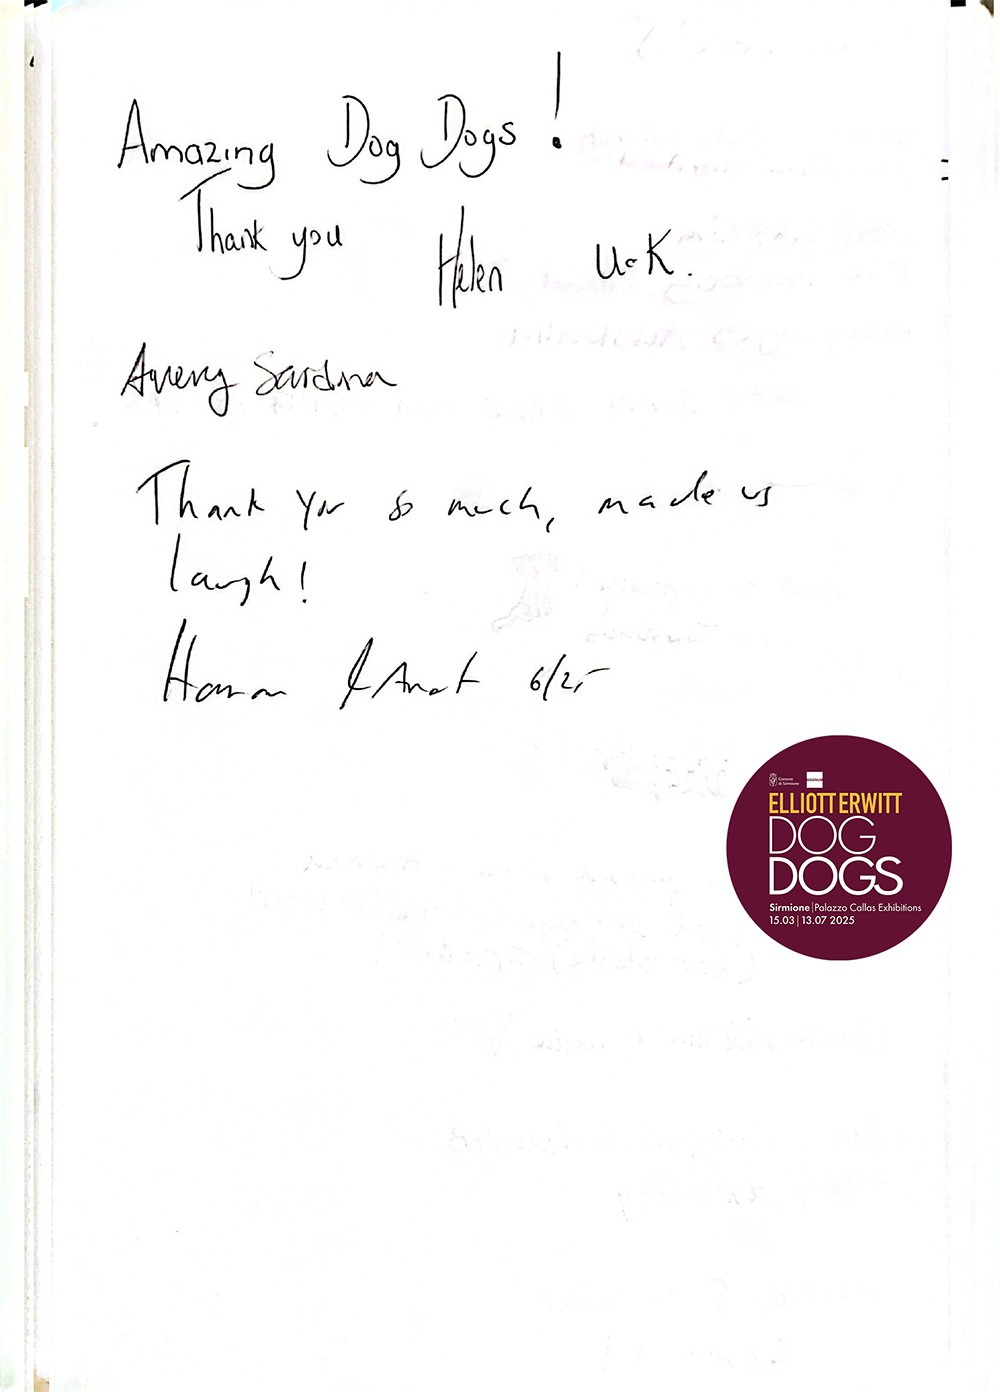 Amazing Dog Dogs!
Thank you
Helen U.K.
Avery Sardina
Thank you so much, made us
laugh!
& Anat 6/25
Comune
di Sirmione
MAGNUM
ELLIOTT ERWITT
DOG
DOGS
Sirmione | Palazzo Callas Exhibitions
15.03 | 13.07 2025